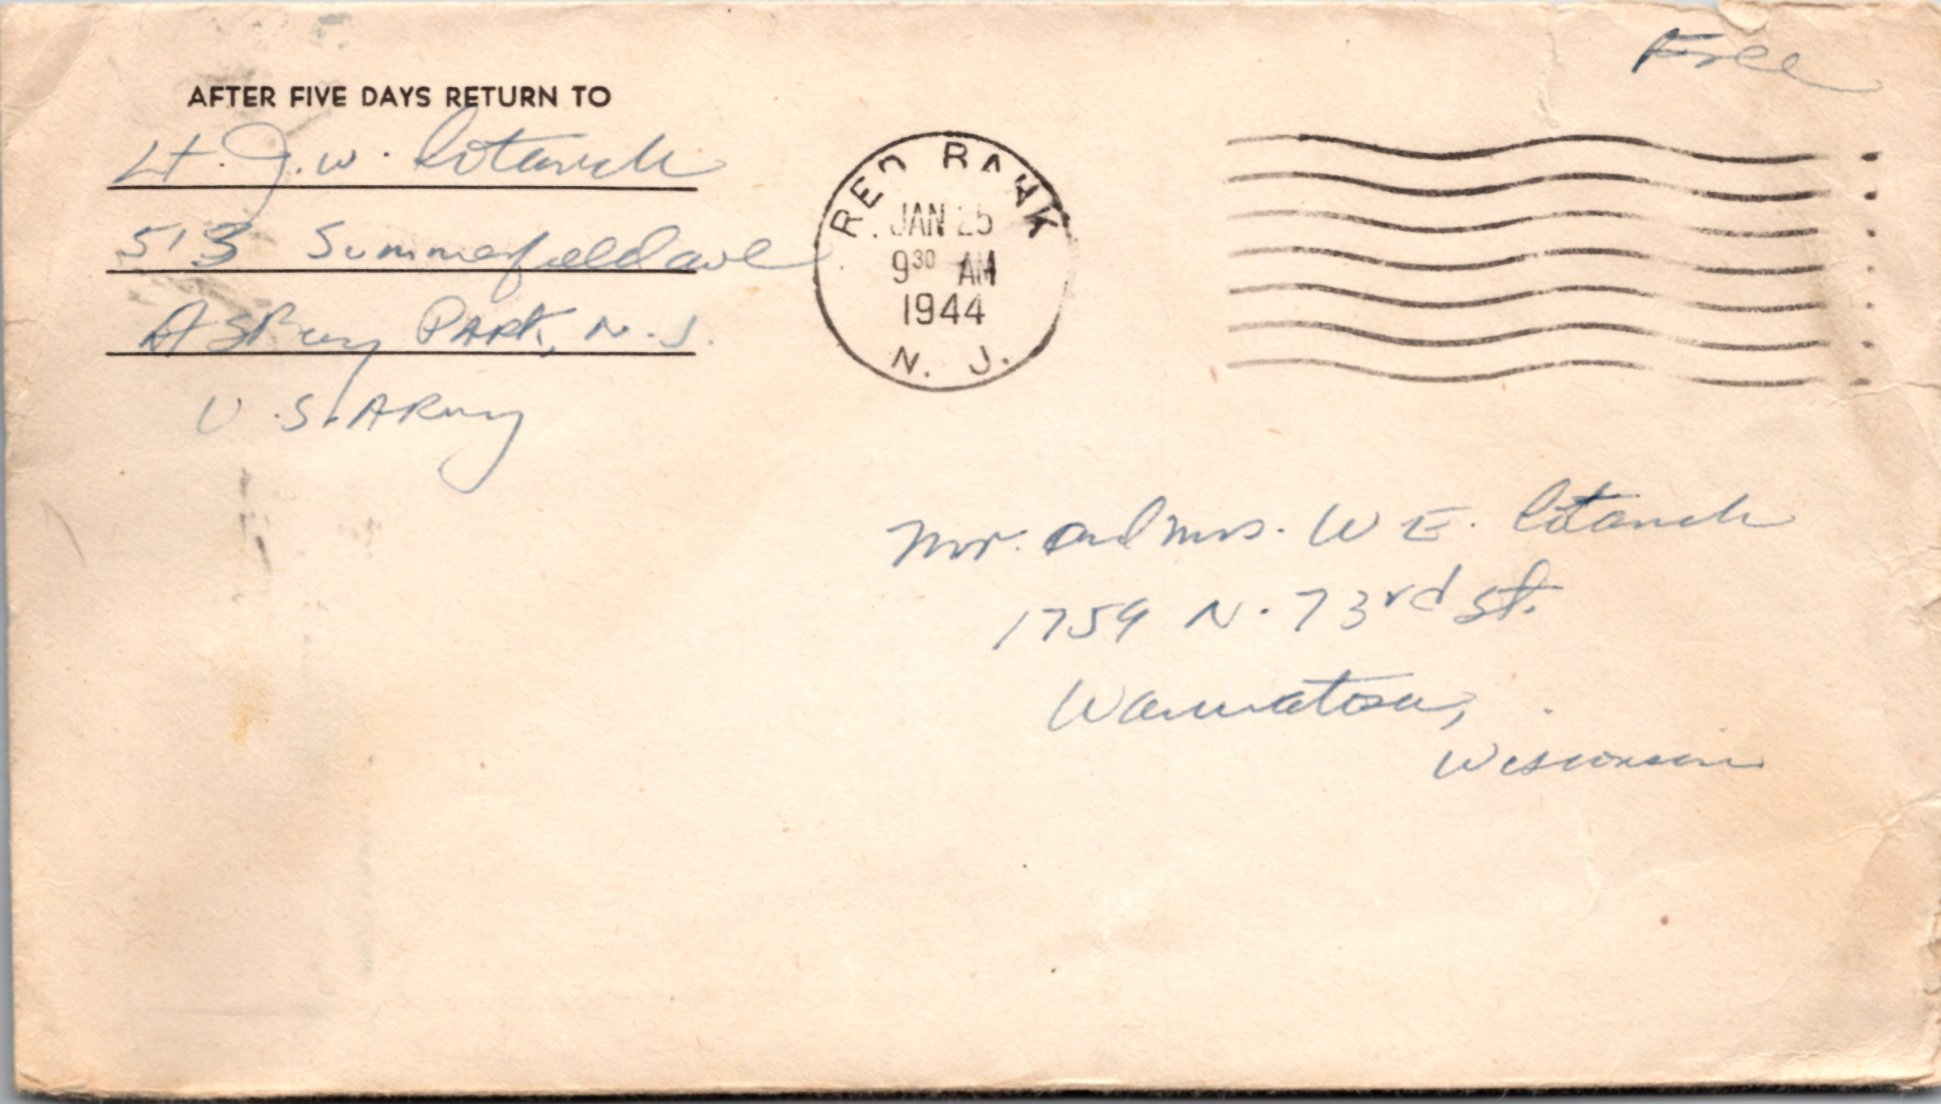 Free
AFTER FIVE DAYS RETURN TO
Lt. J. W.
513 Summerfield ave
Asbury Park, N. J.
U. S. Army
RED BANK
JAN 25
9 30 AM
1944
N. J.
Mr. and Mrs. W E.
1759 N. 73rd St.
Wauwatosa,
Wisconsin